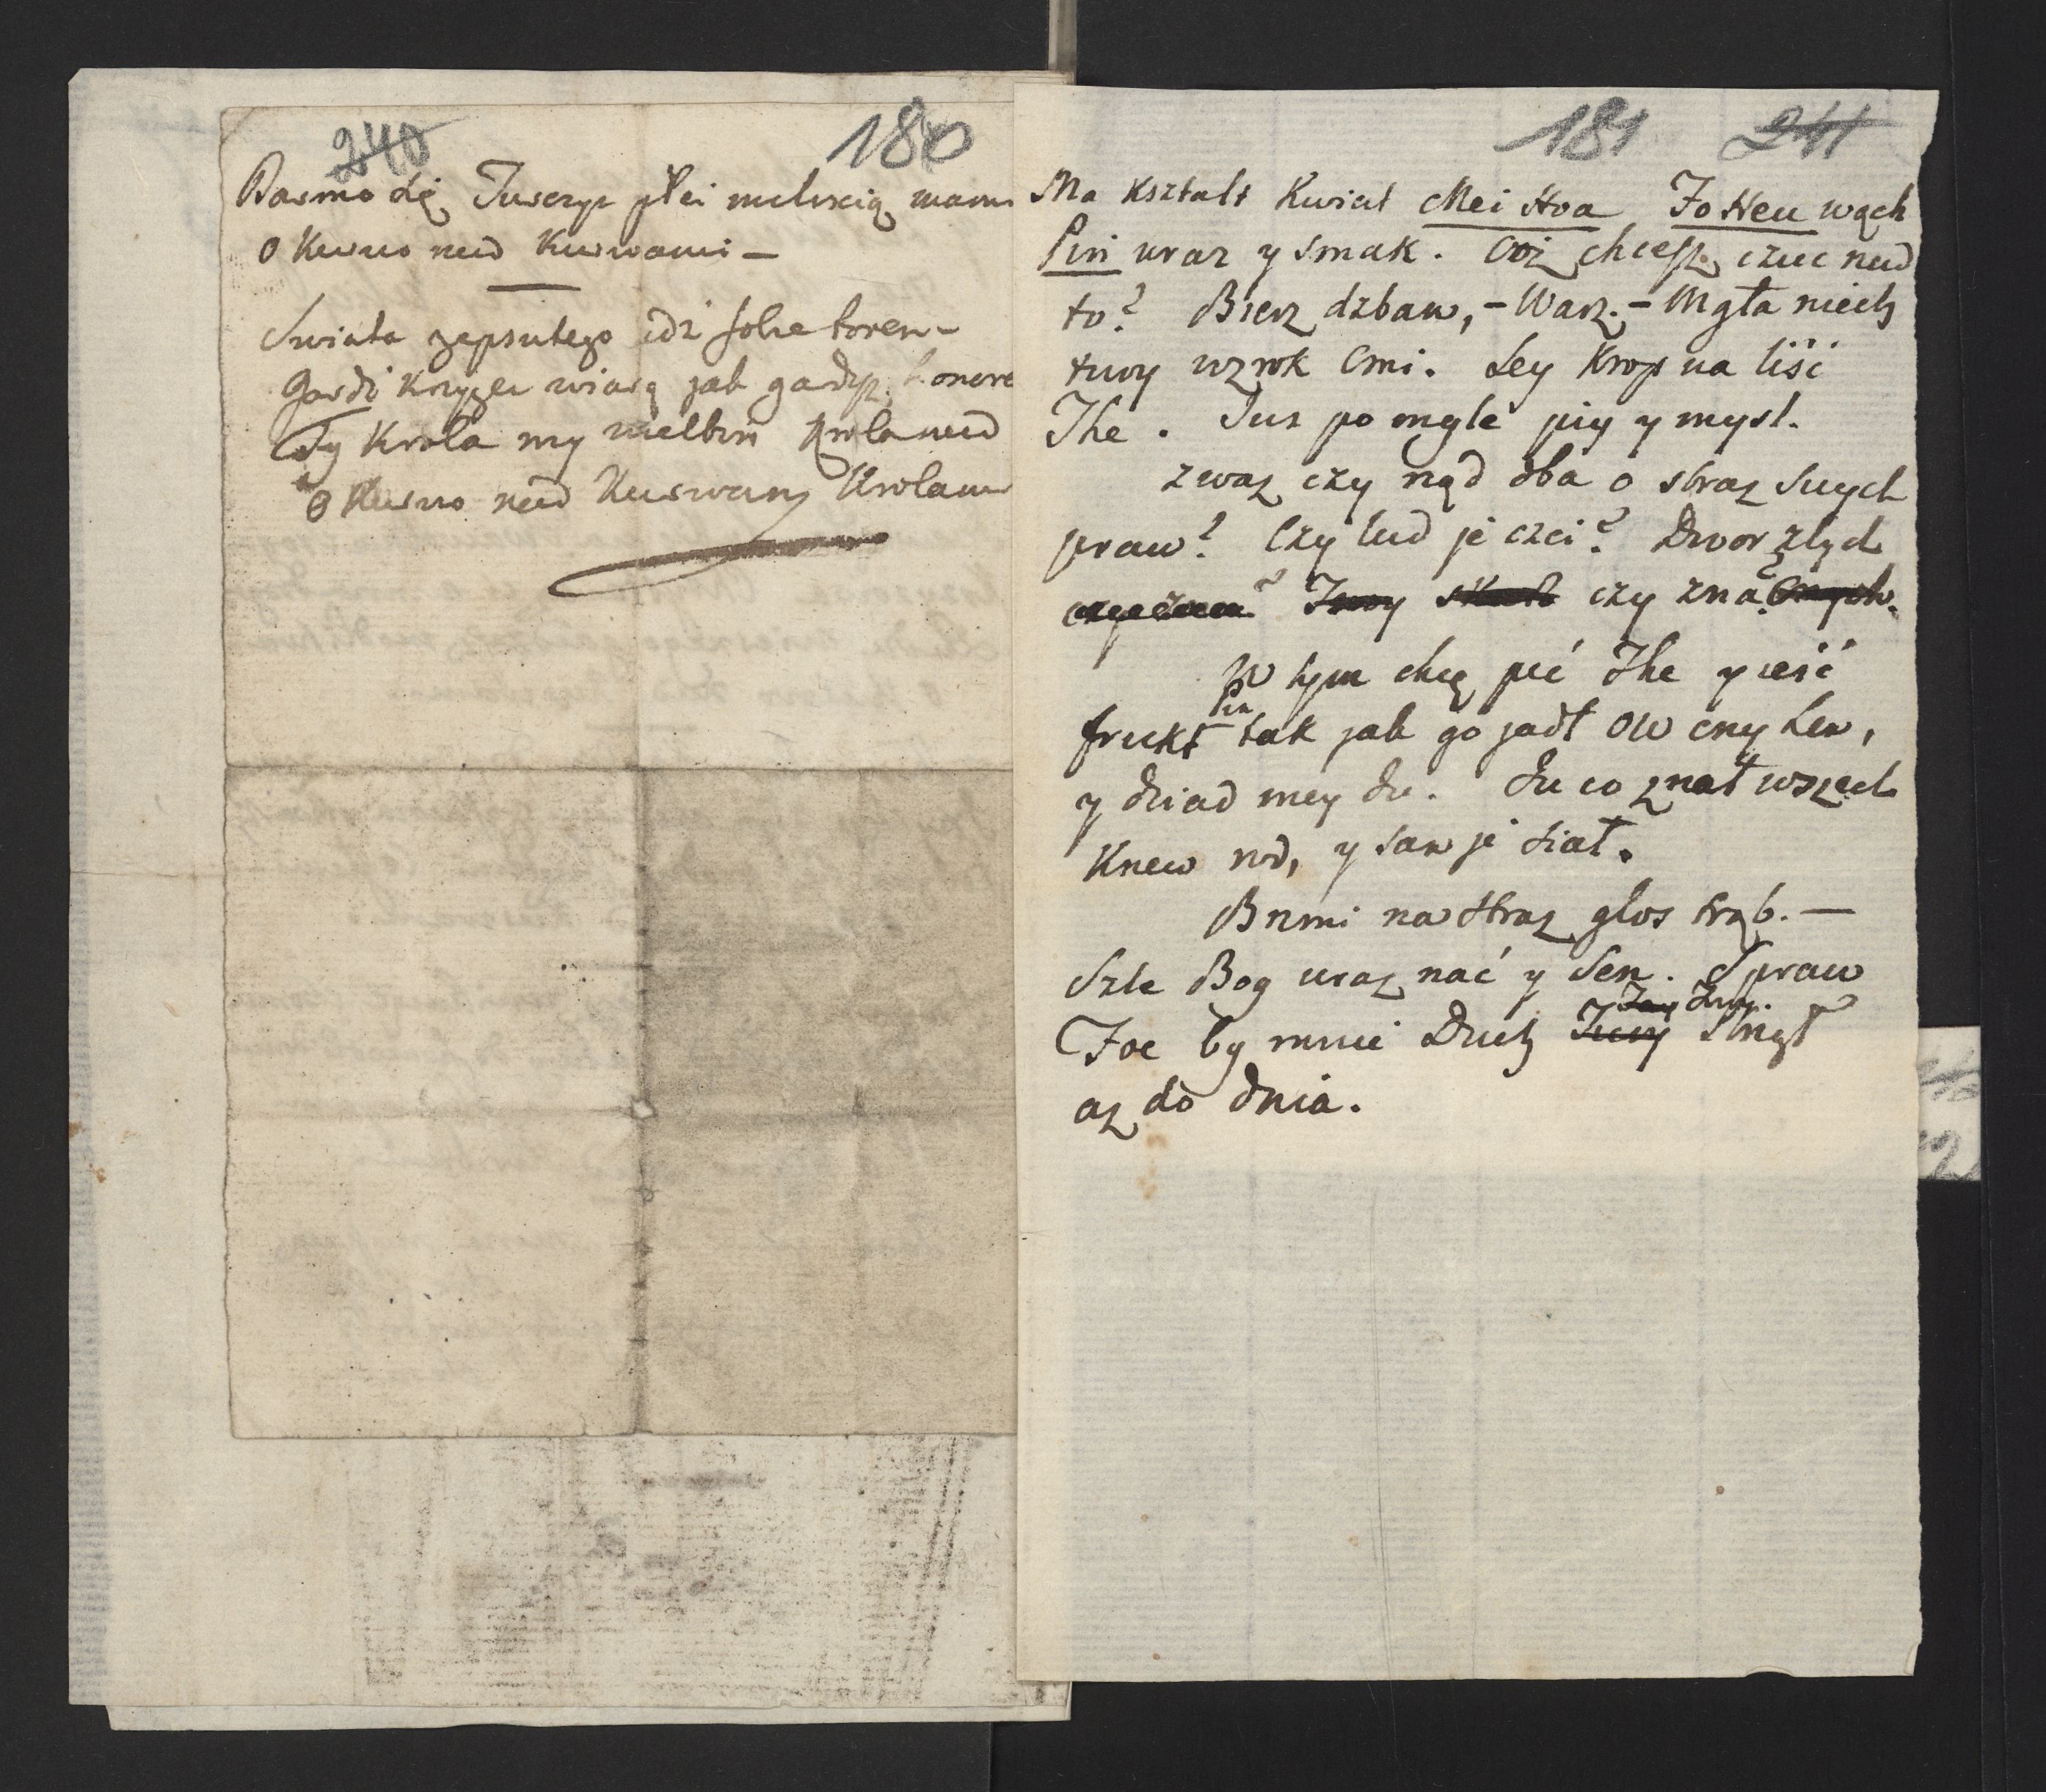 240 180
Darmo się Tuszysz płci
O Kurwo nad Kurwami –
Swiata zepsutego idź sobie torem –
Gardź Krzyża wiarą jak gardzisz honore
Ty Krola my wielbim Krola nad
O Kurwo nad Kurwami Krolam
181 241
Ma kształt Kwiat Mei Hoa Fo Heu wąch
Pin wraz y smak. Coż chcesz czuc nad
to? Bierz dzban, – Warz. – Mgła niech
twoy wzrok Cmi. Ley Krop na liść
The. Tuż po mgle piy y mysl.
zwaz czy rząd dba o straz swych
praw? Czy lud je czci? Dwor złych
czy zna
W tym chcę pić The y ieść
Pin
frukt tak jak go jadł ow cny Len,
y dziad mey du. du co znał wszech
Knew rod, y sam je siał.
Brzmi na straz głos trąb. –
Szle Bog wraz nać y Sen. Spraw
Foe by mnie Duch Twoy strzegł
az do dnia.